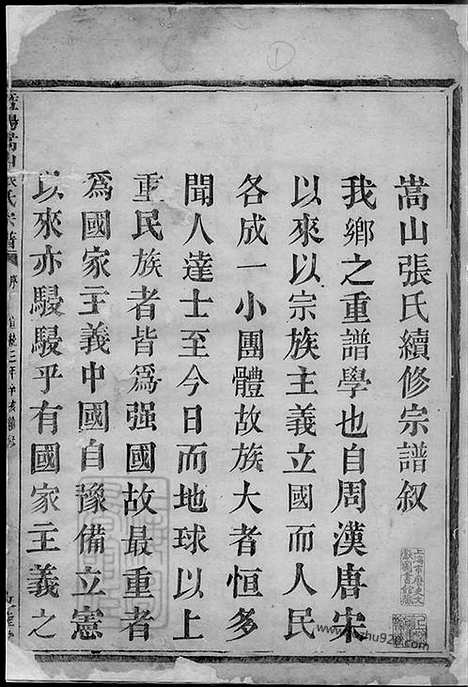 嵩山張氏續修宗譜叙
我鄉之重譜學也自周漢唐宋
以來以宗族主義立國而人民
各成一小團體故族大者恒多
聞人達士至今日而地球以上
重民族者皆爲强國故最重者
爲國家主義中國自豫備立憲
以來亦駸駸乎有國家主義之
嵩山張氏宗譜
序
上海市歷史文獻圖書館藏
1